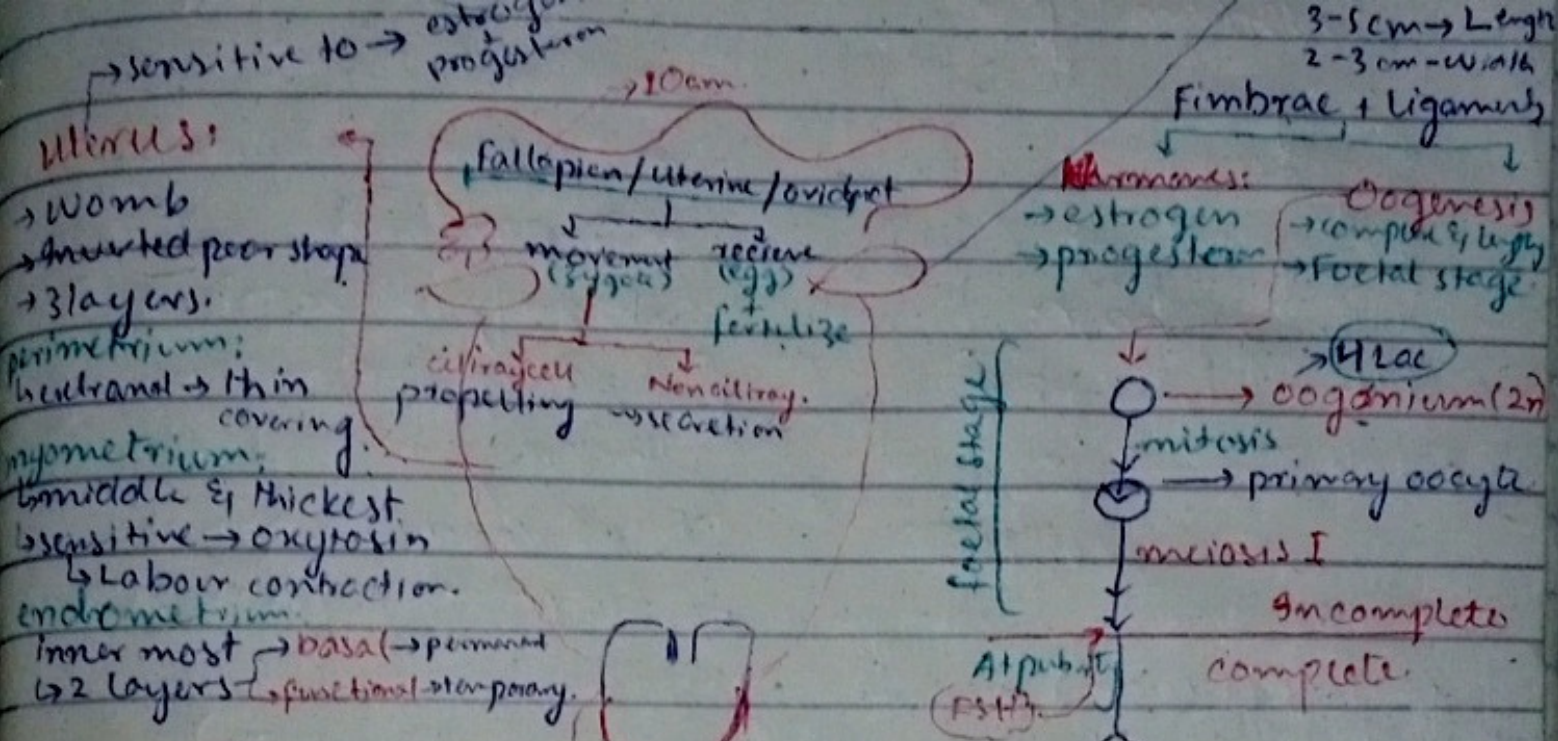 → sensitive to →
progesteron
Uterus:
→ womb
→ Inverted pear shape
→ 3 layers.
perimetrium:
→ thin
covering.
myometrium:
↳ middle & thickest
↳ sensitive → oxytosin
↳ Labour contraction.
endrometrium.
inner most → basal → permanent
↳ 2 layers → functional → temporary.
→ 10cm.
fallopien/uterine/oviduct
movement
recieve
(egg)
fertilize
propelling
Nonciliray.
→ secretion
3-5cm → Length
2-3 cm - width
Fimbrae + Ligaments
Harmones:
→ estrogen
→ progesteron
Oogenesis
→ complex & lengthy
→ Foetal stage
foetal stage.
→ 4 Lac
→ oogonium (2n)
mitosis
→ primary oocyte
meiosis I
Incomplete
At puberty
complete.
(FSH)